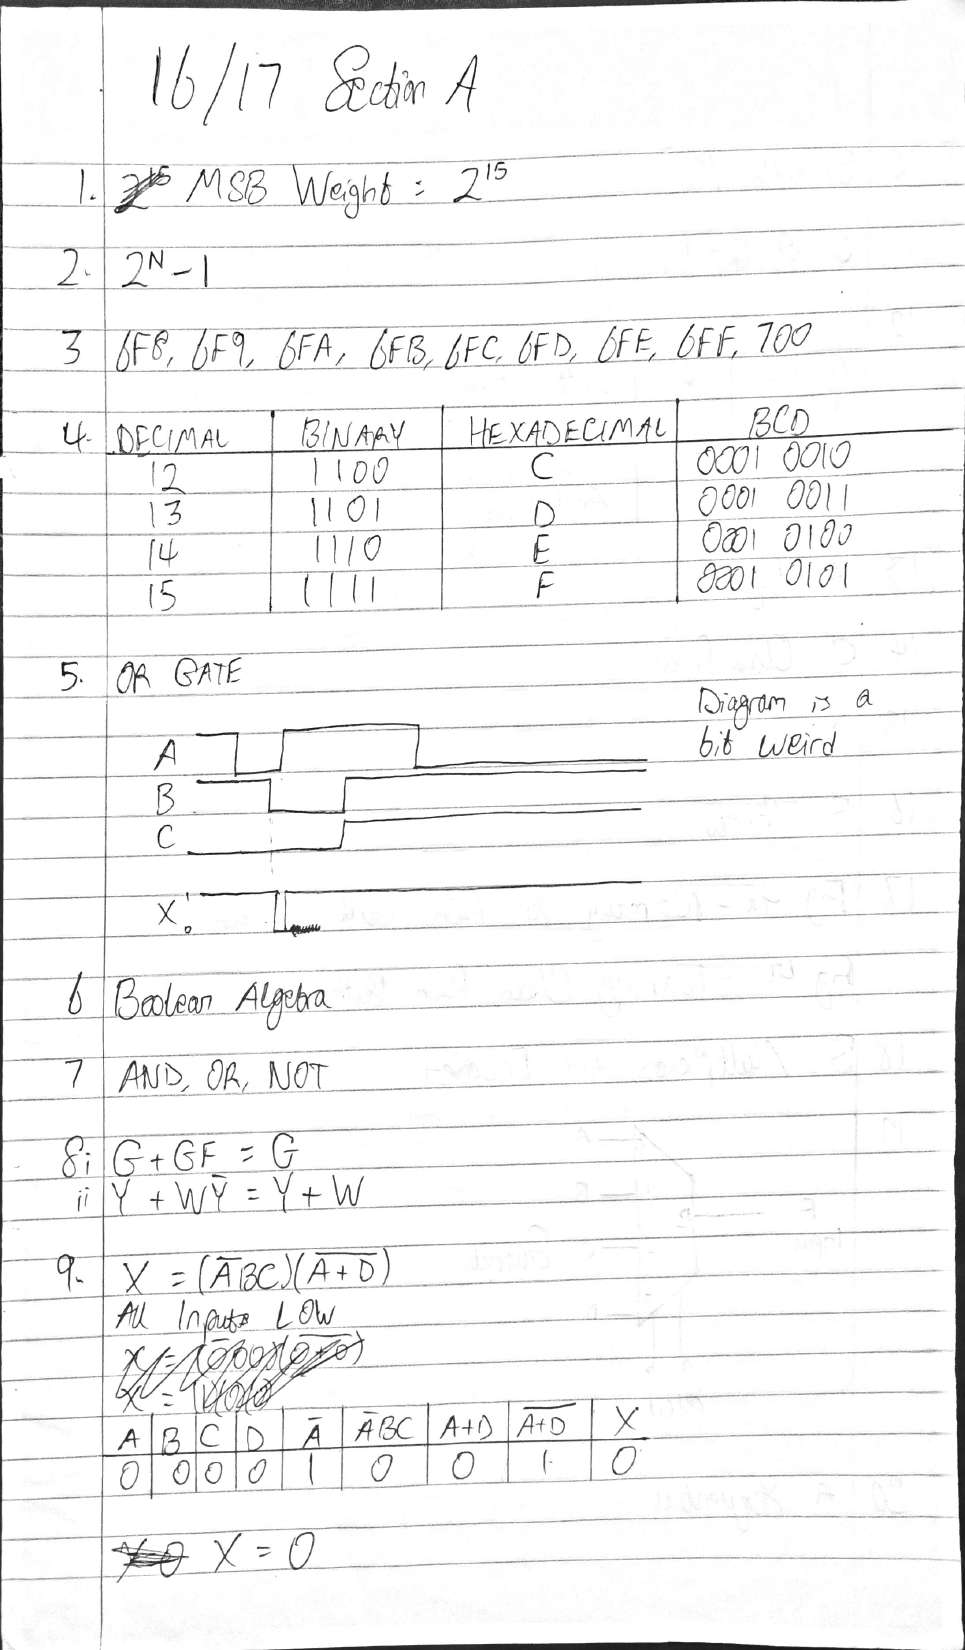 16/17 Section A
1. MSB Weight = 2¹⁵
2. 2ᴺ - 1
3 6F8, 6F9, 6FA, 6FB, 6FC, 6FD, 6FE, 6FF, 700
4. DECIMAL BINARY HEXADECIMAL BCD
12 1100 C 0001 0010
13 1101 D 0001 0011
14 1110 E 0001 0100
15 1111 F 0001 0101
5. OR GATE
Diagram is a
bit weird
A
B
C
X 1
0
6 Boolean Algebra
7 AND, OR, NOT
8i G + GF = G
ii Y + WȲ = Y + W
9. X = (A̅BC)(A̅+̅D̅)
All Inputs LOW
A B C D A̅ A̅BC A+D A̅+̅D̅ X
0 0 0 0 1 0 0 1 0
X = 0